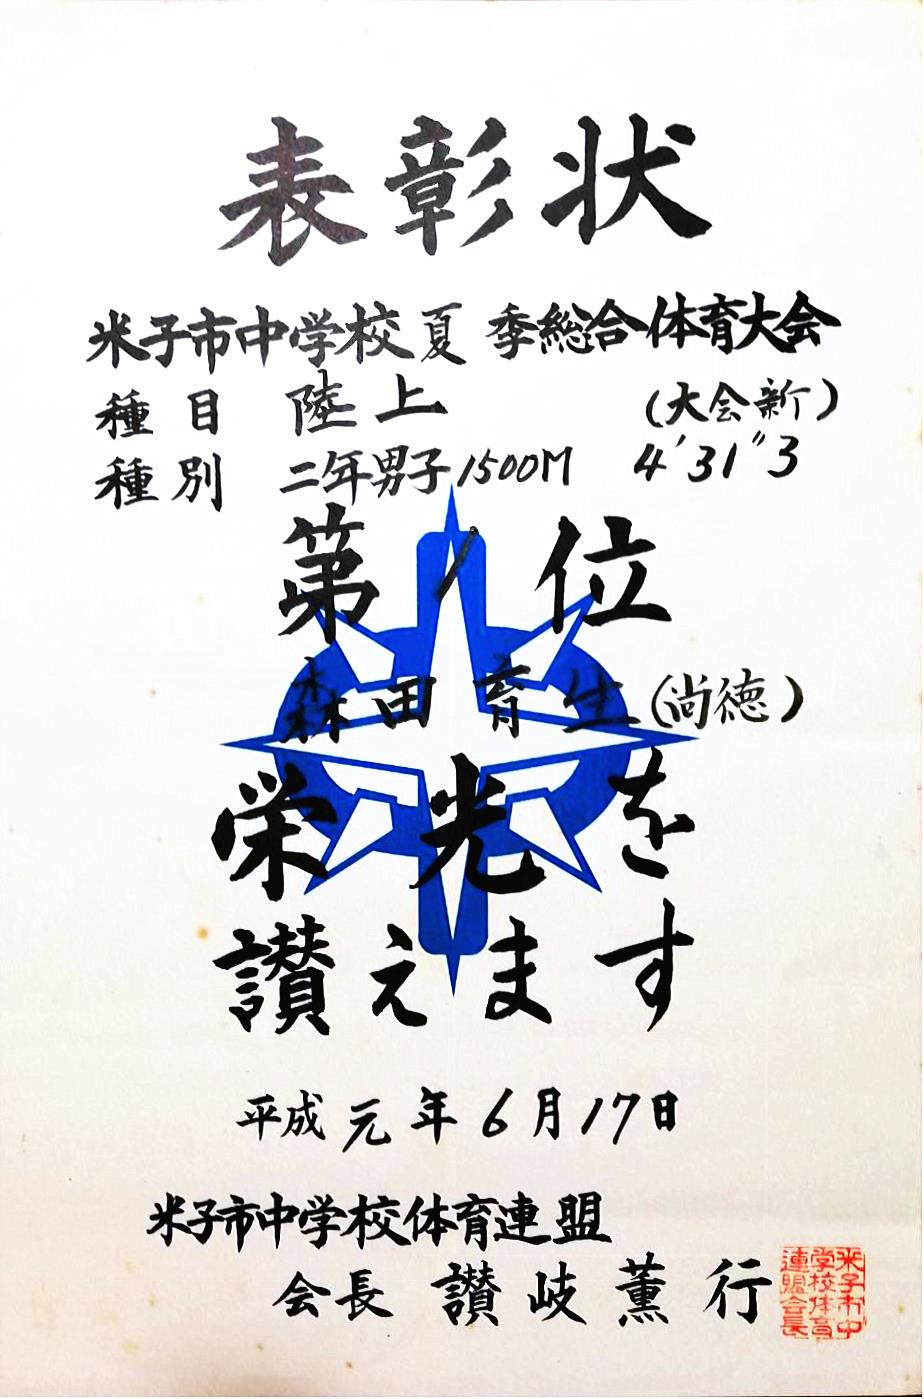 表彰状
米子市中学校夏季総合体育大会
種目 陸上 (大会新)
種別 二年男子1500M 4'31"3
第1位
森田育生(尚徳)
栄光を
讃えます
平成元年6月17日
米子市中学校体育連盟
会長 讃岐薫行
米子市中
学校体育
連盟会長